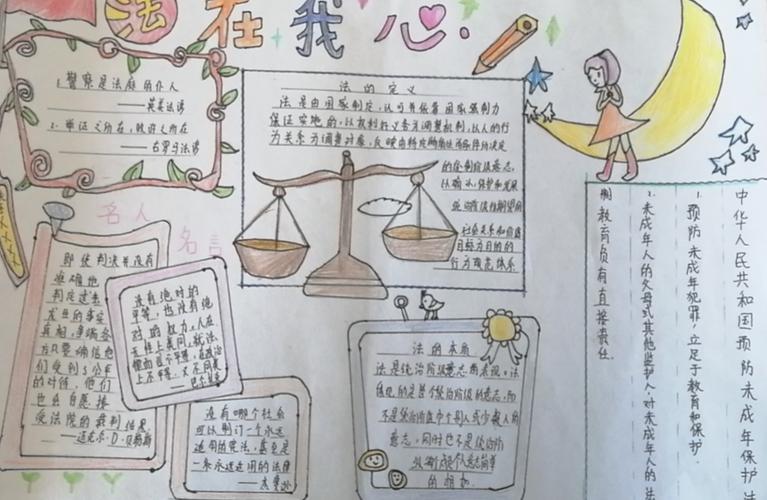 法在我心.
1. 警察是法庭的仆人
——英美法谚
2. 举证之所在，败诉之所在
——古罗马法谚
法的定义
法是由国家制定、认可并依靠国家强制力
保证实施的，以权利和义务为调整机制，以人的行
为关系为调整对象，反映由特定物质生活条件所决定
的统治阶级意志，
以确认、保护和发展
目标为目的的
行为规范体系
名人
名言
即使判决并没有
准确地
判定过去
发生的事实
真相，争端各
方只要确信他
们受到了公平
的对待，他们
也会自愿接
受法院的裁判结果
——迈克尔·D·贝勒斯
没有绝对的
平等，也没有绝
对的权力，人在
没有哪个社会
可以制订一个永远
适用的宪法，甚至是
一条永远适用的法律
——杰斐逊
法的本质
法是统治阶级意志的表现。法
体现的是整个统治阶级的意志，而
不是统治阶级中个别人或少数人的
意志，同时也不是统治阶
的相加.
中华人民共和国预防未成年保护法
1. 预防未成年犯罪，立足于教育和保护.
2. 未成年人的父母或其他监护人，对未成年人的法
制教育负有直接责任.